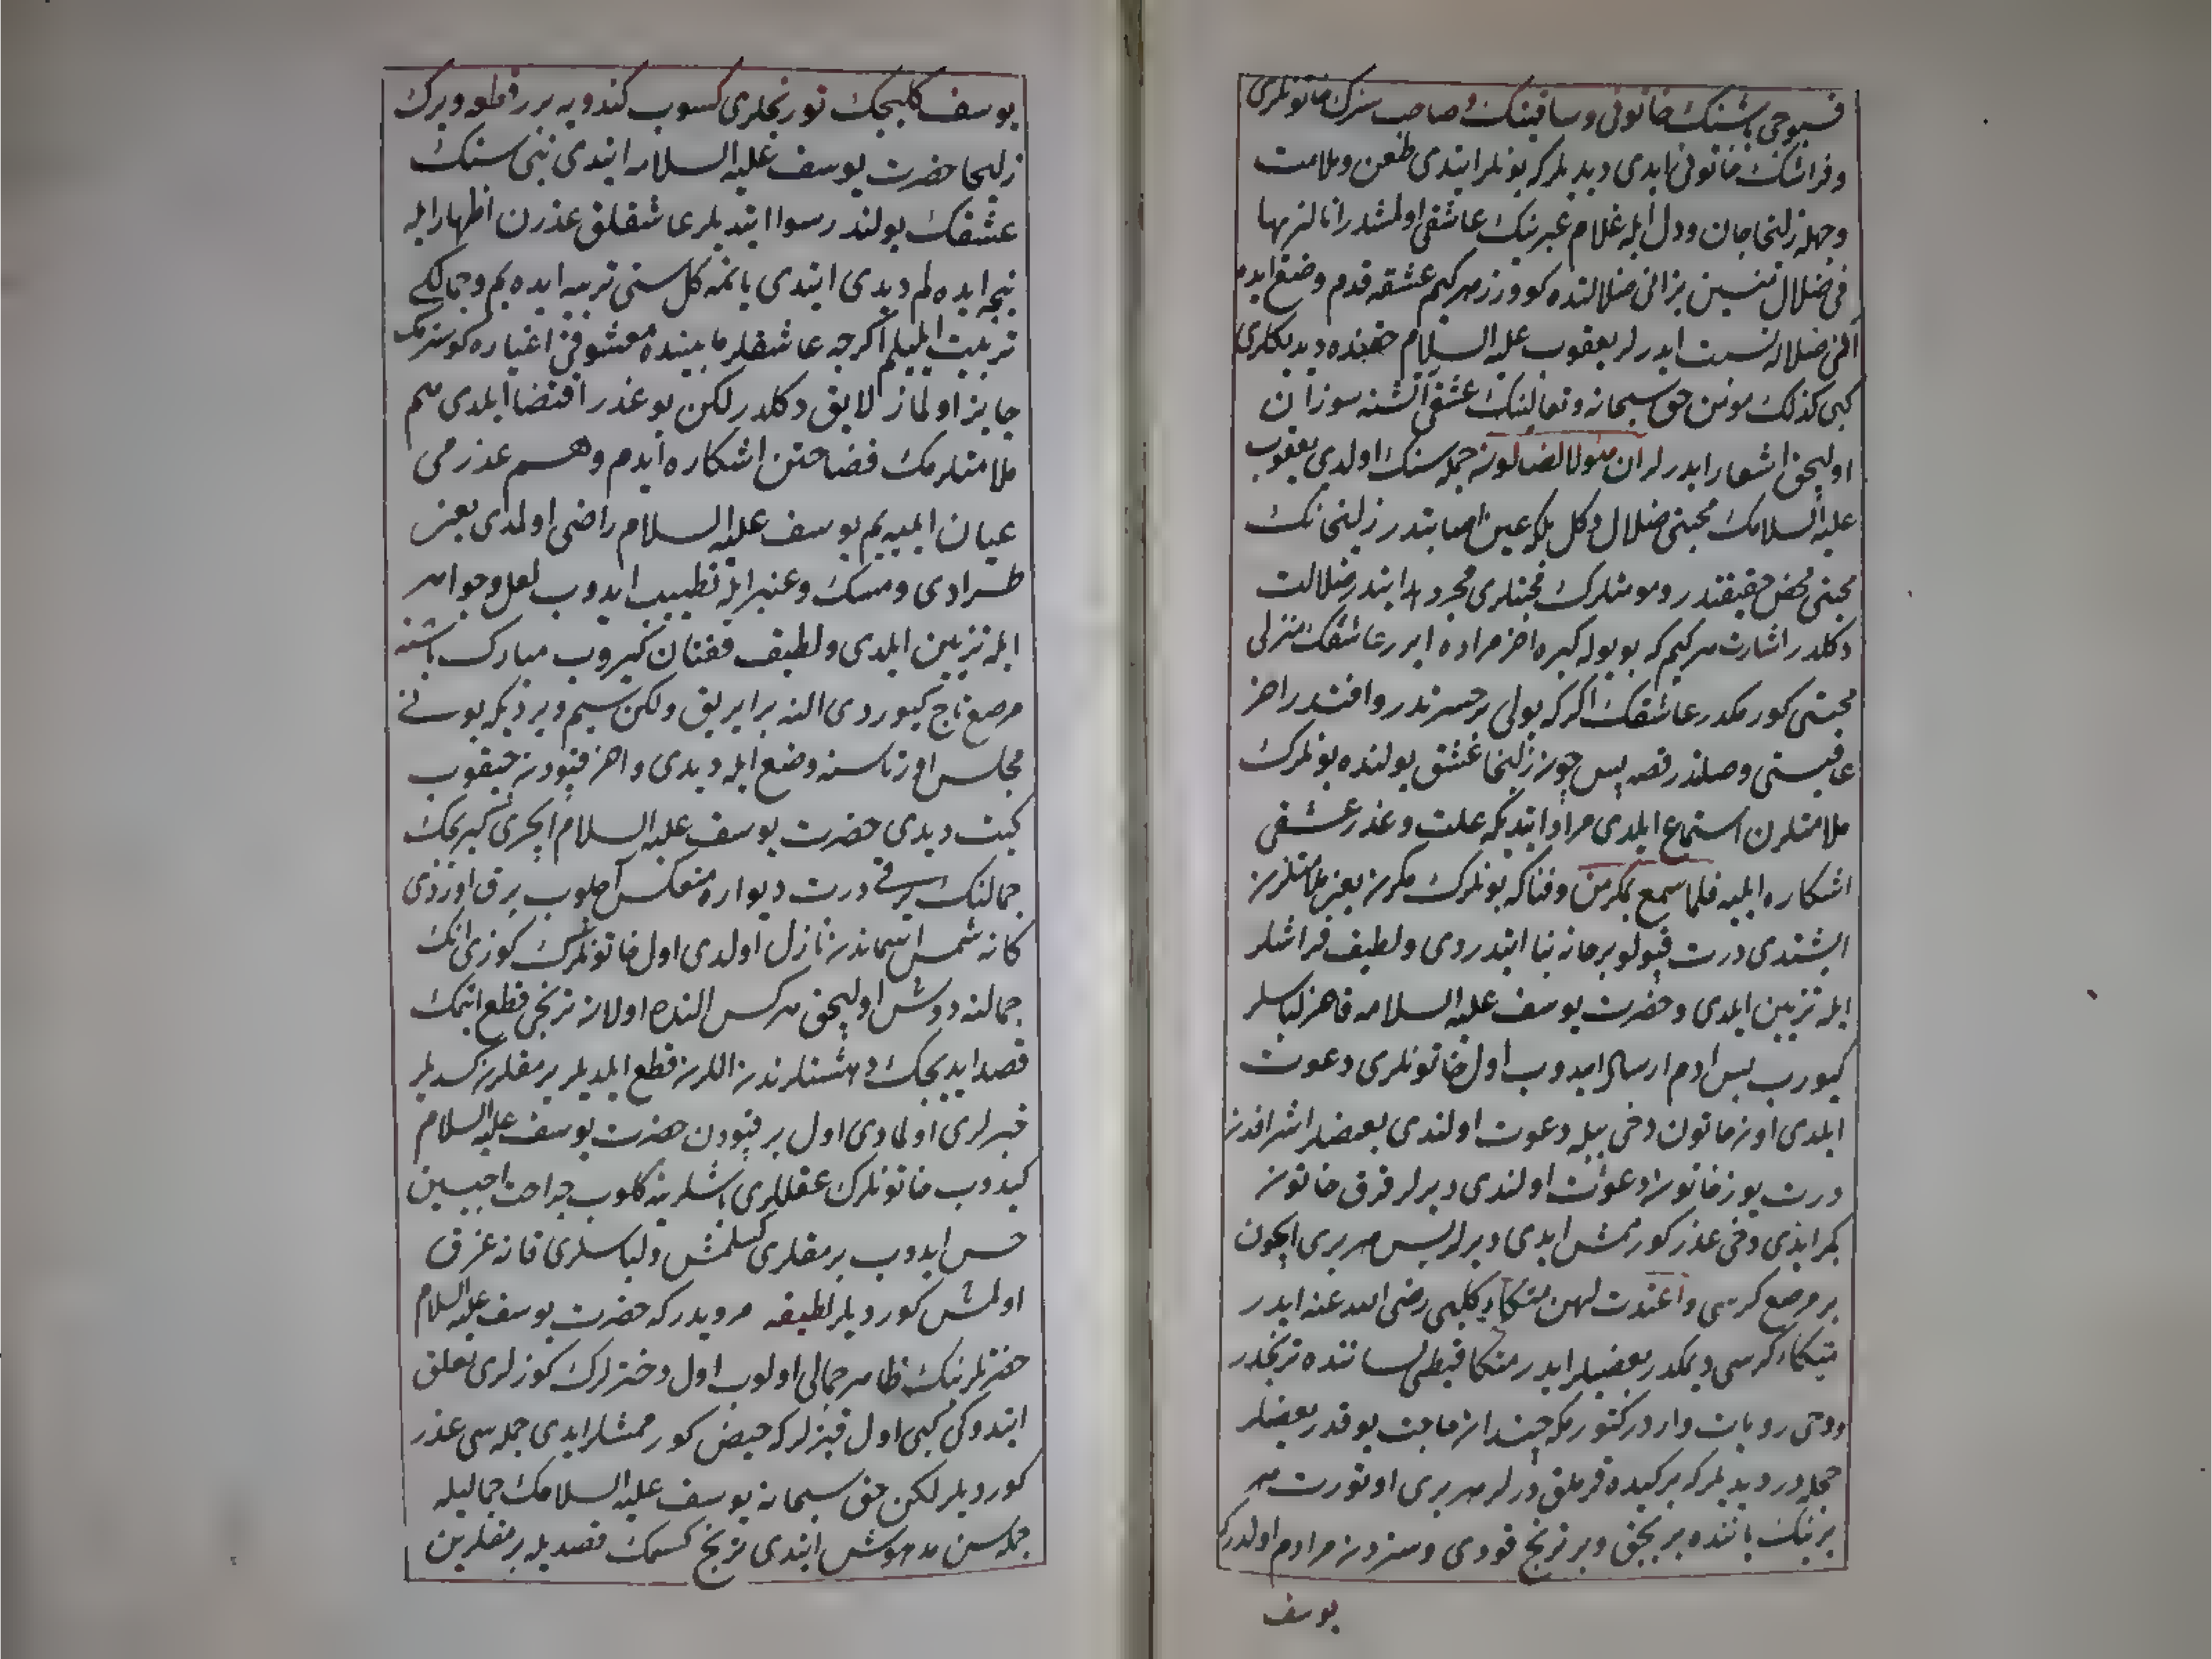 قپوجی باشنك خاتونی و ساقینك و صاحب سنرك خاتونلری
و فراشك خاتونی ایدی دیدیلر كه بونلر ایتدی طعن و ملامت
وجهله زلیخا جان و دل ایله غلام عبرینك عاشقی اولمشدر انا لنریها
فی ضلال مبین بز انی ضلالنده كوررز هر كیم عشقه قدم وضع ایده
انی ضلاله نسبت ایدرلر یعقوب علیه السلام حقنده دیدكلری
كبی كذلك مومن حق سبحانه و تعالینك عشقی آتشنه سوزان
اولیجق اشعار ایدرلر ان هؤلا لضالون جمله سنك اولدی یعقوب
علیه السلامك محبتی ضلال دكل بلكه عین اصابتدر زلیخانك
محبتی محض حقیقتدر و مومنلرك محبتلری مجرد هدایتدر ضلالت
دكلدر اشارت هر كیم كه بو یوله كیره اخر مراده ایرر عاشقك منزلی
محبتی كورمكدر عاشقك اكر كه یولی پر حسرتدر و افتدر اخر
عاقبتی وصلدر قصه پس چون زلیخا عشق یولنده بونلرك
ملامتلرن استماع ایلدی مراد ایتدیكه علت و عذر عشقی
اشكاره ایلیه فلما سمعت بمكرهن وقتاكه بونلرك مكرن یعنی ملامتلرن
ایشتدی درت قپولو بر خانه بنا ایتدردی و لطیف فراشلر
ایله تزیین ایلدی و حضرت یوسف علیه السلامه فاخر لباسلر
كیورب پس ادم ارسال ایدوب اول خاتونلری دعوت
ایلدی اون خاتون دخی بیله دعوت اولندی بعضلر اشرافدن
درت یوز خاتون دعوت اولندی دیرلر قرق خاتون
بكر ایدی دخی عذر كورممش ایدی دیرلر پس هر بری ایچون
بر مرصع كرسی و اعتدت لهن متكاء كلبی رضی الله عنه ایدر
متكاء كرسی دیمكدر بعضیلر ایدر متكا قبطی لساننده ترنجدر
ودخی روایات واردر كتورمكه چندان حاجت یوقدر بعضلر
جمله در دیدیلر كه بر كیده قرملق درلر هر بری اوتورت هر
برینك یاننده بر بچق و بر ترنج قودی و سزدن مرادم اولدركه
یوسف
یوسف كلیجك تورنجلری كسوب كندویه برر قطعه ویرك
زلیخا حضرت یوسف علیه السلامه ایتدی بنی سنك
عشقك یولندر رسوا ایتدیلر عاشقلق عذرن اظهار ایله
نیجه ایده لم دیدی ایتدی یانمه كل سنی تربیه ایده یم و جمالكی
تربیت ایلیلم اكرچه عاشقلر مابیننده معشوقی اغیاره كوسترمك
جایز اولماز لایق دكلدر لكن بو عذر اقتضا ایلدی هم
ملامتلرمك فضاحتن اشكاره ایدم و هم عذرمی
عیان ایلیه یم یوسف علیه السلام راضی اولمدی یعنی
طرادی و مسك و عنبر ایله تطییب ایدوب لعل و جواهر
ایله تزیین ایلدی و لطیف قفتان كیروب مبارك باشنه
مرصع تاج كیوردی النه بر ابریق و لكن سیم ویردیكه بونی
مجلس اورتاسنه وضع ایله دیدی و اخر قپودن چیقوب
كیت دیدی حضرت یوسف علیه السلام ایچری كیریجك
جمالنك برقی درت دیواره منعكس اولوب برق اوردی
كانه شمس اسماندن نازل اولدی اول خاتونلرك كوزی انك
جمالنه دوش اولیجق هر كس النده اولان ترنجی قطع ایتمك
قصد ایدیجك دهشتلرندن اللرن قطع ایلدیلر برمقلرن كسدیلر
خبرلری اولمادی اول بر قپودن حضرت یوسف علیه السلام
كیدوب خاتونلرك عقللری باشلرینه كلوب جراحت اجیسین
حس ایدوب برمقلری كسلمش و لباسلری قانه غرق
اولمش كوردیلر لطیفه مرویدر كه حضرت یوسف علیه السلام
حضرتلرینك ظاهر جمالی اولوب اول دخترلرك كوزلری تعلق
ایتدوكی كبی اول قیزلر كه حیض كورممشلر ایدی جمله سی عذر
كوردیلر لكن حق سبحانه یوسف علیه السلامك جمالیله
جمله سن مدهوش ایتدی ترنج كسمك قصدیله برمقلرین